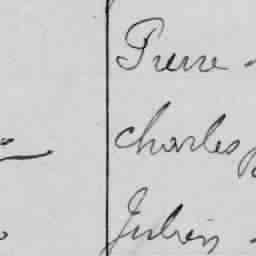 Pierre
Charles
Julien